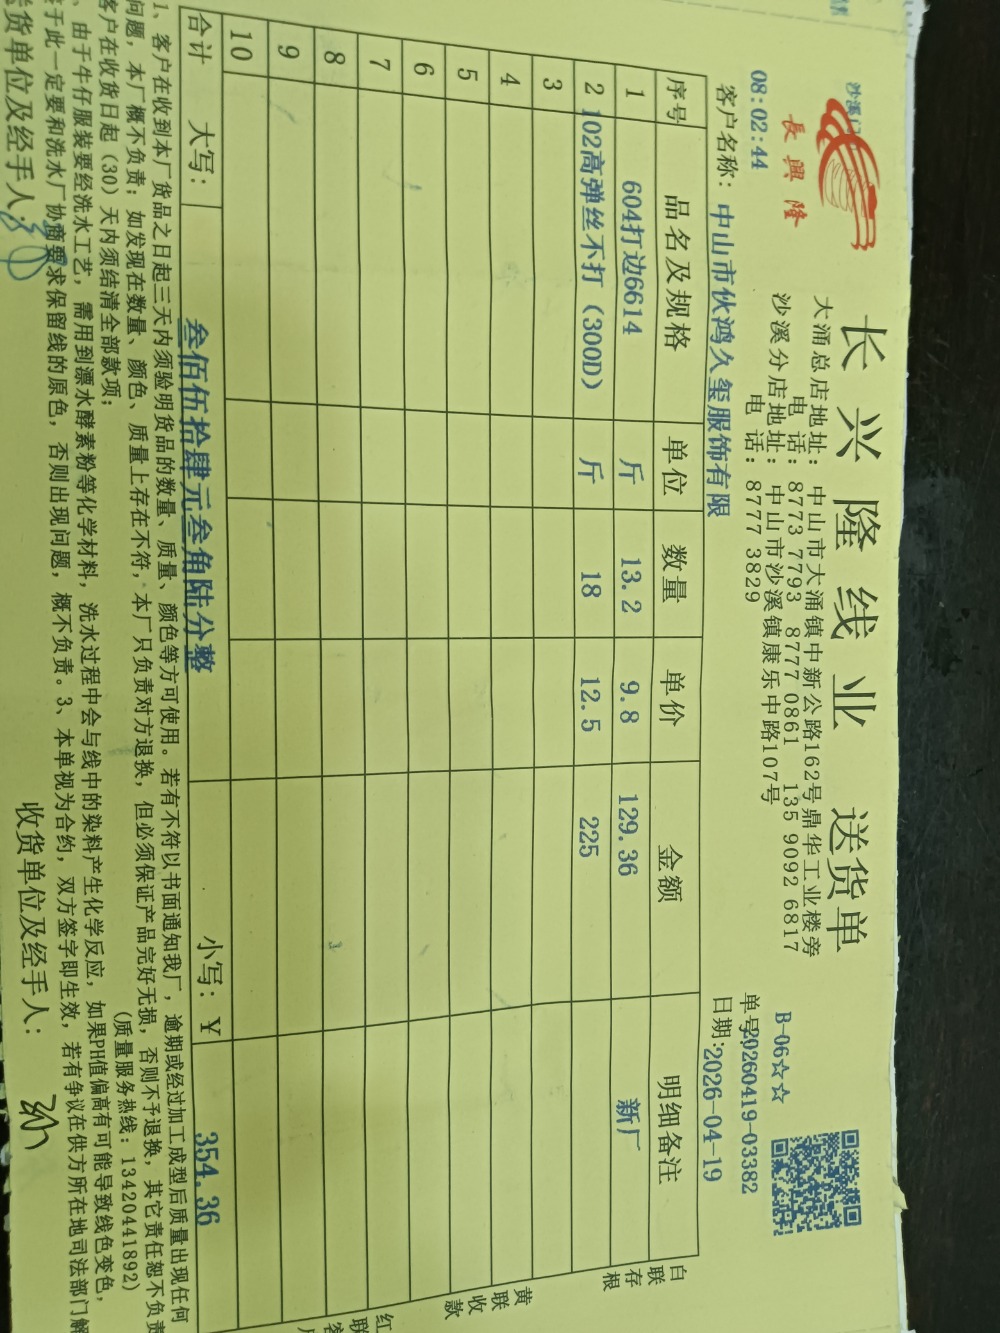 长兴隆线业 送货单
長興隆
大涌总店地址:中山市大涌镇中新公路162号鼎华工业楼旁
电 话:8773 7793 8777 0861 135 9092 6817
沙溪分店地址:中山市沙溪镇康乐中路107号
电 话:8777 3829
沙溪
B-06☆☆
08:02:44
单号:20260419-03382
客户名称:中山市伙鸿久玺服饰有限
日期:2026-04-19
序号 品名及规格 单位 数量 单价 金额 明细备注
1 604打边6614 斤 13.2 9.8 129.36 新厂
2 102高弹丝不打(300D) 斤 18 12.5 225
3
4
5
6
7
8
9
10
合计 大写: 叁佰伍拾肆元叁角陆分整 小写:¥ 354.36
白联存根
黄联收款
红联客
1、客户在收到本厂货品之日起三天内须验明货品的数量、质量、颜色等方可使用。若有不符以书面通知我厂,逾期或经过加工成型后质量出现任何
问题,本厂概不负责;如发现在数量、颜色、质量上存在不符,本厂只负责对方退换,但必须保证产品完好无损,否则不予退换,其它责任恕不负责
客户在收货日起(30)天内须结清全部款项; (质量服务热线:13420441892)
、由于牛仔服装要经洗水工艺,需用到漂水酵素粉等化学材料,洗水过程中会与线中的染料产生化学反应,如果PH值偏高有可能导致线色变色,
于此一定要和洗水厂协商要求保留线的原色,否则出现问题,概不负责。3、本单视为合约,双方签字即生效,若有争议在供方所在地司法部门解
货单位及经手人: 收货单位及经手人: